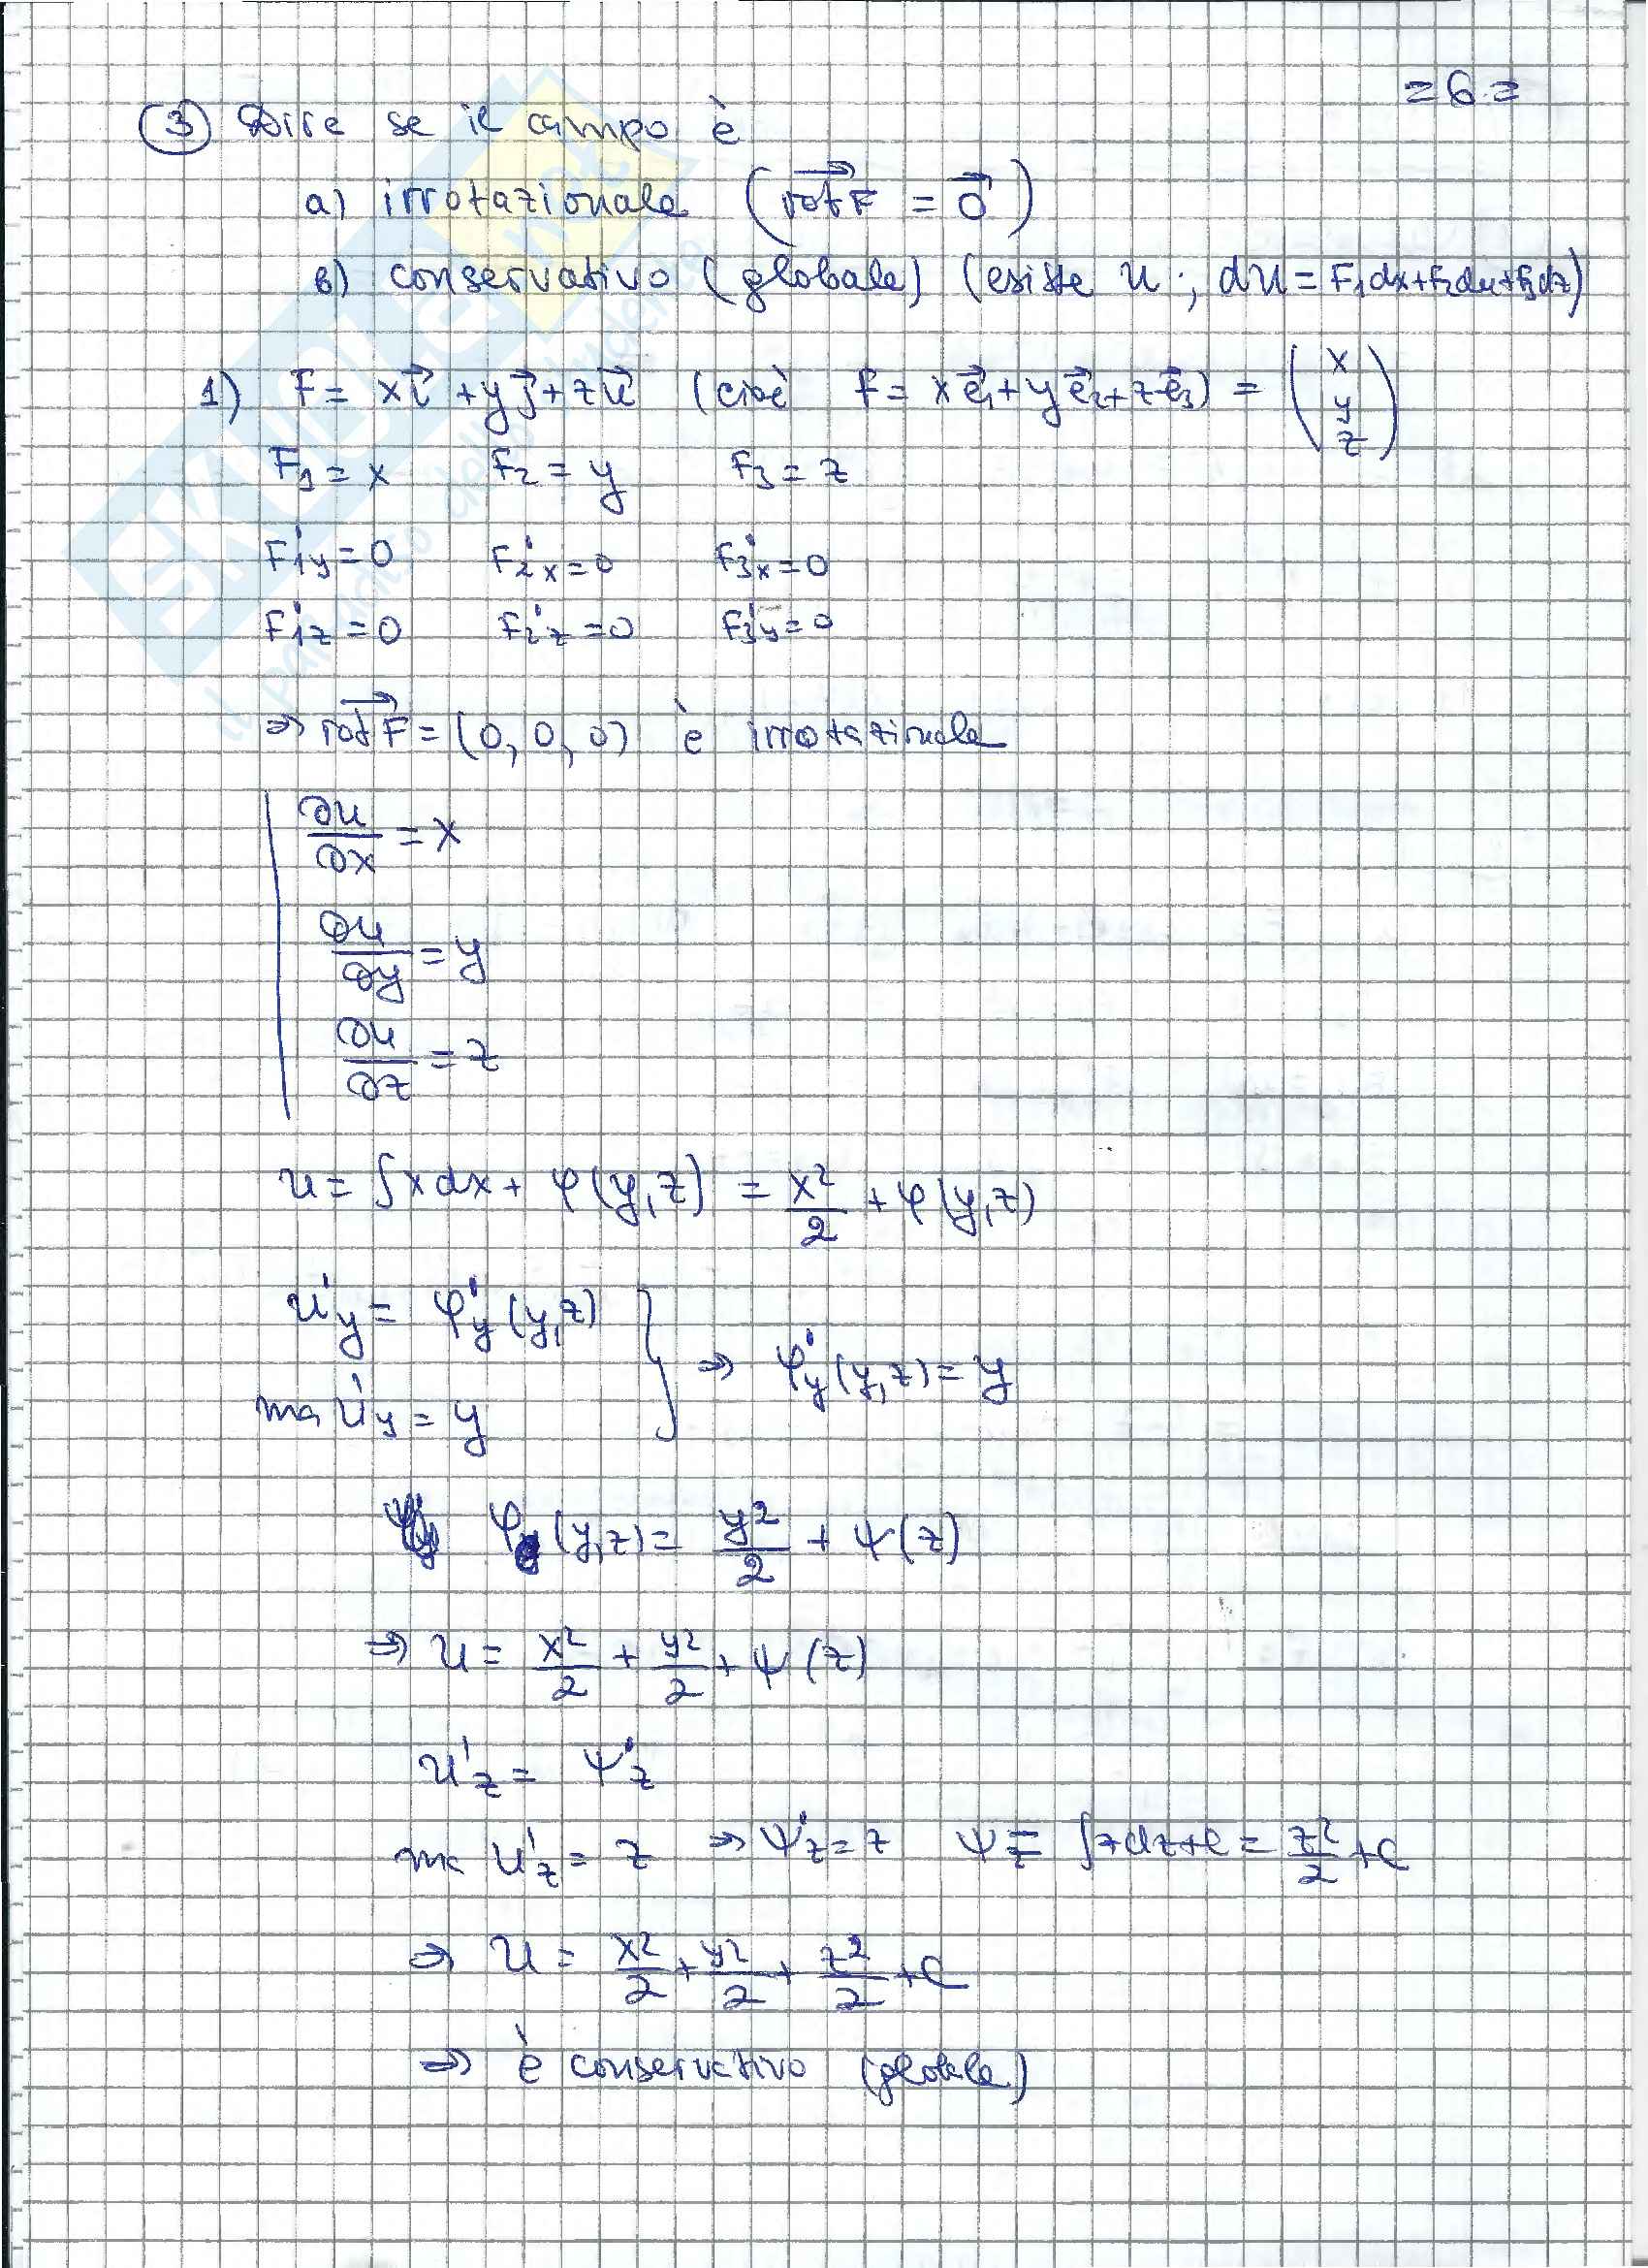 = 6 =
(3) Dire se il campo è
a) irrotazionale (rot F = 0)
b) conservativo (globale) (esiste u ; du = F₁dx+F₂dy+F₃dz)
1) F = x i + y j + z k (cioè F = x e₁ + y e₂ + z e₃) = (x y z)
F₁ = x F₂ = y F₃ = z
F₁'y = 0 F₂'x = 0 F₃'x = 0
F₁'z = 0 F₂'z = 0 F₃'y = 0
⇒ rot F = (0, 0, 0) è irrotazionale
∂u/∂x = x
∂u/∂y = y
∂u/∂z = z
u = ∫x dx + φ(y,z) = x²/2 + φ(y,z)
u'y = φ'y (y,z)
ma u'y = y ⇒ φ'y (y,z) = y
φ (y,z) = y²/2 + ψ(z)
⇒ u = x²/2 + y²/2 + ψ(z)
u'z = ψ'z
ma u'z = z ⇒ ψ'z = z ψ = ∫z dz + c = z²/2 + c
⇒ u = x²/2 + y²/2 + z²/2 + c
⇒ è conservativo (globale)
SKUOLA.net